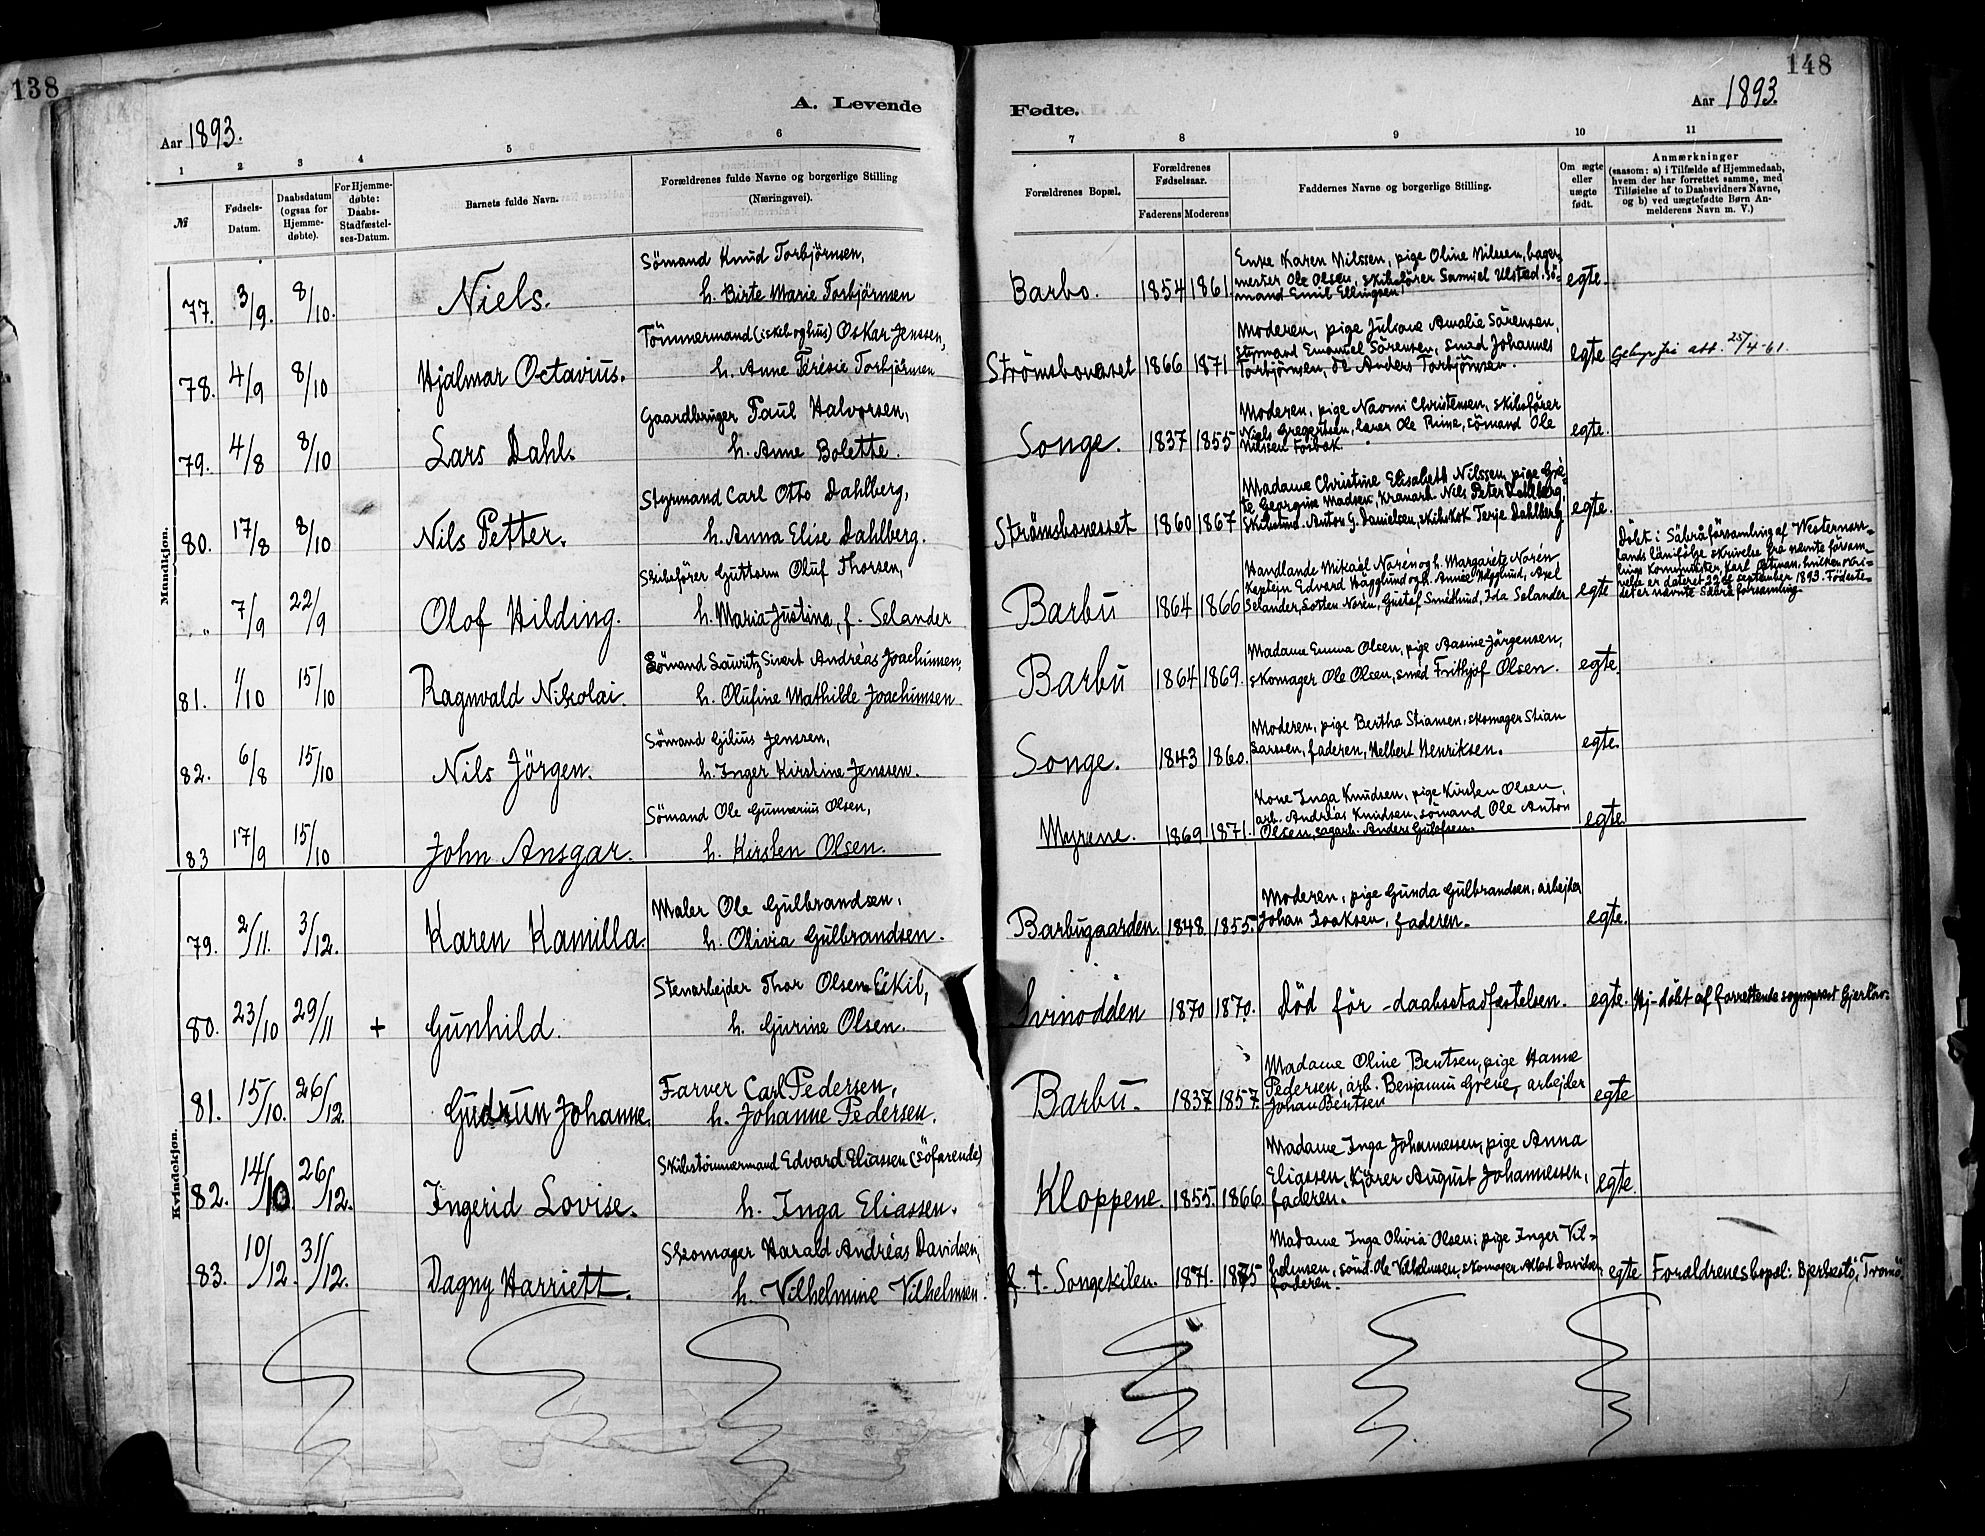 138
A. Levende
Aar 1893.
1 2 3 4 5 6
№
Fødsels-
Datum.
Daabsdatum
(ogsaa for
Hjemme-
døbte).
For Hjemme-
døbte:
Daabs-
Stadfæstel-
ses-Datum.
Barnets fulde Navn.
Forældrenes fulde Navne og borgerlige Stilling
(Næringsvei).
Mandkjøn.
77. 3/9. 8/10. Niels.
Sömand Knud Torbjörnsen,
h. Birte Marie Torbjörnsen
78. 4/9 8/10 Hjalmar Octavius.
Tömmermand (i skib og hus) Oskar Jenssen,
h. Anne Terésie Torbjörnsen
79. 4/8 8/10 Lars Dahl.
Gaardbruger Paul Halvorsen,
h. Anne Bolette.
80. 17/8 8/10 Nils Petter.
Styrmand Carl Otto Dahlberg,
h. Anna Elise Dahlberg.
„ 7/9 22/9 Olof Hilding.
Skibsförer Guttorm Oluf Thorsen,
h. Maria Justina, f. Selander
81. 1/10 15/10 Ragnvald Nikolai.
Sömand Lauritz Sivert Andréas Joachimsen,
h. Olufine Mathilde Joachimsen
82. 6/8 15/10 Nils Jörgen.
Sömand Gilius Jenssen,
h. Inger Kirstine Jenssen.
83 17/9 15/10 John Ansgar.
Sömand Ole Gunnerius Olsen,
h. Kirsten Olsen.
Kvindekjøn.
79. 2/11. 3/12. Karen Kamilla.
Maler Ole Gulbrandsen,
h. Olivia Gulbrandsen.
80. 23/10 29/11 + Gunhild.
Stenarbejder Thor Olsen Eikil,
h. Gurine Olsen.
81. 15/10. 26/12. Gudrun Johanne.
Farver Carl Pedersen,
h. Johanne Pedersen.
82. 14/10 26/12. Ingerid Lovise.
Skibstömmermand Edvard Eliassen (söfarende)
h. Inga Eliassen.
83. 10/12. 31/12. Dagny Harriett.
Skomager Harald Andréas Davidsen,
h. Vilhelmine Vilhelmsen.
148
Fødte.
Aar 1893.
7 8 9 10 11
Forældrenes Bopæl.
Forældrenes
Fødselsaar.
Faderens Moderens
Faddernes Navne og borgerlige Stilling.
Om ægte
eller
uægte
født.
Anmærkninger
(saasom: a) i Tilfælde af Hjemmedaab,
hvem der har forrettet samme, med
Tilføielse af to Daabsvidners Navne,
og b) ved uægtefødte Børn An-
melderens Navn m. V.)
Barbo. 1854 1861.
Enke Karen Nilssen, pige Oline Nilssen, bager-
mester Ole Olsen, skibsförer Samuel Ulstad, sö-
mand Emil Ellingsen.
egte.
Strömsbouesset 1866 1871
Moderen, pige Juliane Amalie Sörensen,
styrmand Emanuel Sörensen, smed Johannes
Torbjörnsen, do Anders Torbjörnsen.
egte
att. 25/4-61.
Songe. 1837 1855
Moderen, pige Naomi Christensen, skibsförer
Niels Gregertsen, lærer Ole Rime, sömand Ole
Nilssen Fosbæk.
egte.
Strömsbouesset 1860 1867
Madame Christine Elisabeth Nilssen, pige Gre-
te Georgine Madsen, Kranarb. Niels Peter Dahlberg,
Skibstmd. Anton G. Danielsen, skibskok Terje Dahlberg
egte.
Barbu 1864 1866
Handlande Mikaél Norén og h. Margaréte Norén
Kaptejn Edvard Hägglund og h. Anna Hägglund, Axel
Selander, Sotten Norén, Gustaf Smedlund, Ida Selander
egte
Döbt i Säbråförsamling af Vesternorr-
lands län ifölge skrivelse fra nævnte försam-
lings Komminister, Karl Östman, hvilken skri-
velse er dateret 22de september 1893. Fødeste-
det er nævnte Säbrå forsamling.
Barbu 1864 1869.
Madame Emma Olsen, pige Aasine Jörgensen,
skomager Ole Olsen, smed Frithjof Olsen.
egte.
Songe. 1843 1860.
Moderen, pige Bertha Stiansen, skomager Stian
Larssen, faderen, Helbert Henriksen.
egte.
Myrene. 1869 1871.
Kone Inga Knudsen, pige Kirsten Olsen,
arb. Andréas Knudsen, sömand Ole Anton
Olsen, sagarb. Anders Gulofsen.
egte.
Barbugaarden. 1848 1855.
Moderen, pige Gunda Gulbrandsen, arbejder
Johan Isaksen, faderen.
egte.
Svinodden 1870 1870.
Död för daabsstadfæstelsen.
egte.
Hj-döbt af forrettende sogneprest Gjerlöw.
Barbu. 1837 1857
Madame Oline Bentsen, pige Hanne
Pedersen, arb. Benjamin Greve, arbejder
Johan Bentsen
egte
Kloppene. 1855. 1866.
Madame Inga Johannessen, pige Anna
Eliassen, Kjörer August Johannessen,
faderen.
egte.
f. t. Songekilen. 1871. 1875
Madame Inga Olivia Olsen; pige Inger Vil-
helmsen, sömd. Ole Vilhelmsen, skomager Albert Davidsen,
faderen.
egte
Foraldrenes bopæl: Bjerkestö, Tromö.